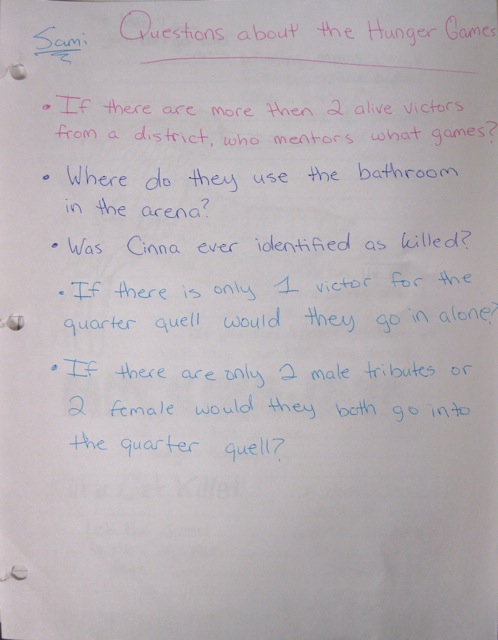 Sami Questions about the Hunger Games
• If there are more then 2 alive victors
from a district, who mentors what games?
• Where do they use the bathroom
in the arena?
• Was Cinna ever identified as killed?
• If there is only 1 victor for the
quarter quell would they go in alone?
• If there are only 2 male tributes or
2 female would they both go into
the quarter quell?